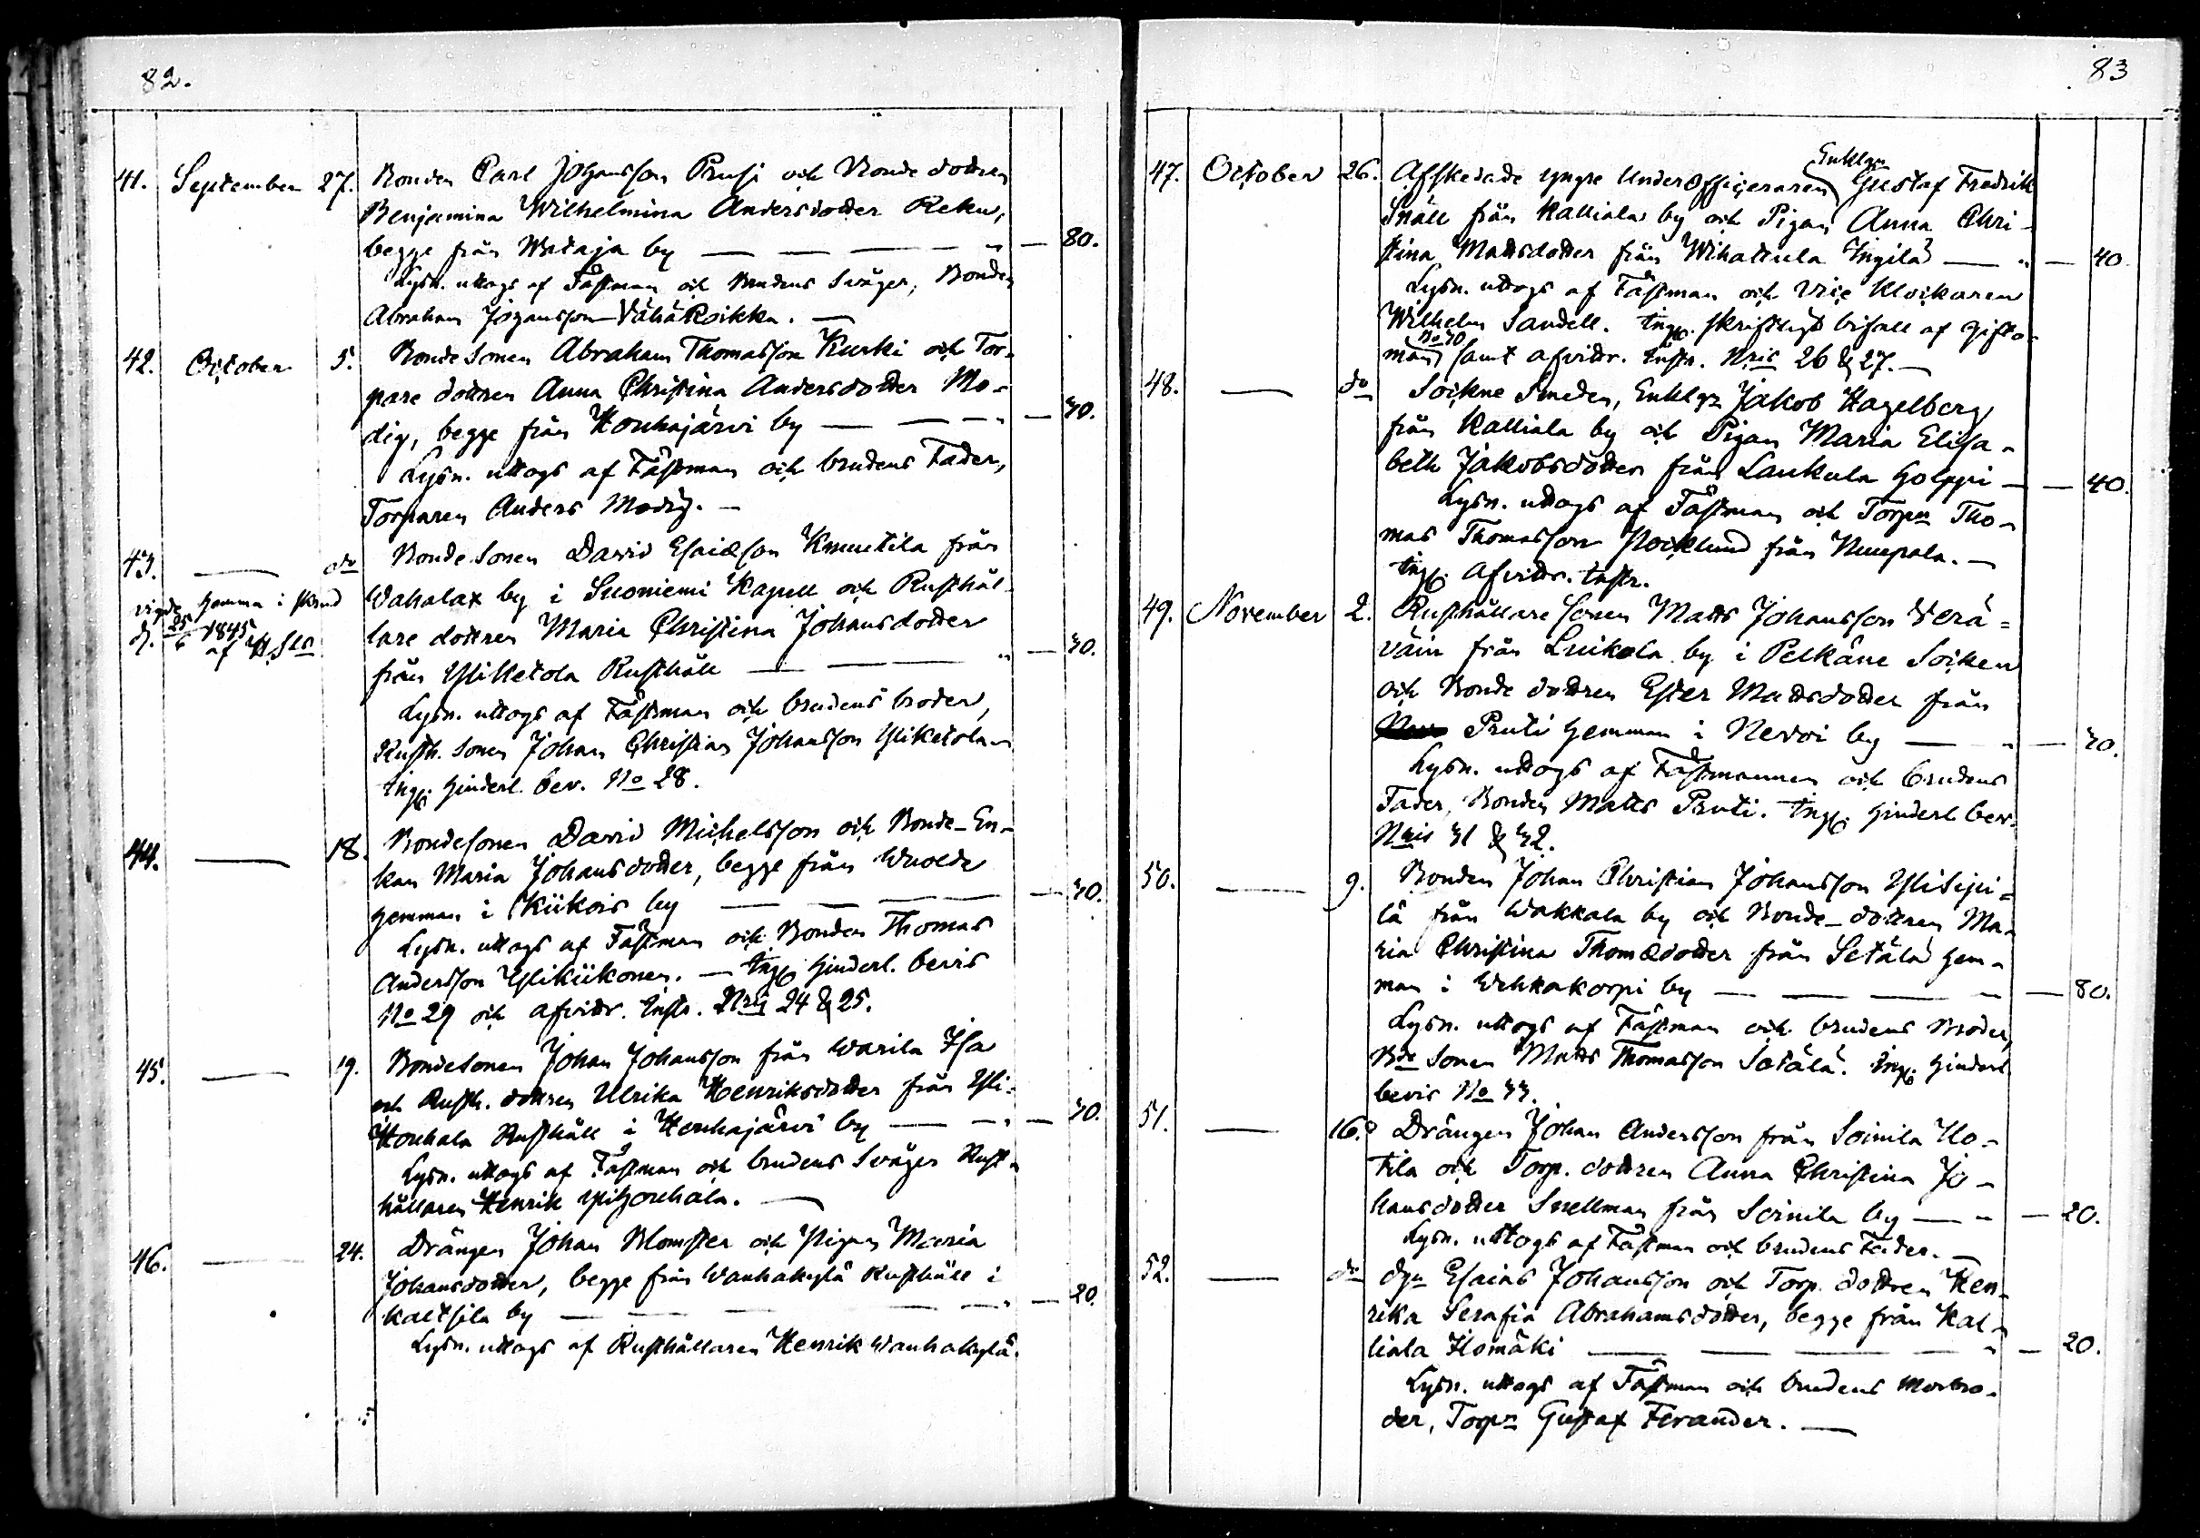 82.
41. September 27. Bonden Carl Johansson Prusi och Bonde dottren
Benjamina Wilhelmina Andersdotter Reku,
begge från Wataja by — — — " — 80.
Lysn. uttogs af Fästman och Brudens Svåger, Bonden
Abraham Johansson VähäRoikka. —
42. October 5. Bondesonen Abraham Thomasson Kurki och Tor-
pare dottren Anna Christina Andersdotter Mo-
dig, begge från Houhajärvi by — — " — 30.
Lysn. uttogs af Fästman och brudens Fader,
Torparen Anders Modig. —
43. — do Bondesonen David Esaiæson Knuutila från
Wahalax by i Suoniemi Kapell och Rusthål-
lare dottren Maria Christina Johansdotter
från Yliketola Rusthåll — — " — 30.
vigde hemma i
d. 25/6 1845
af
Lysn. uttogs af Fästman och brudens broder,
Rusth. sonen Johan Christian Johansson Yliketola
Ingg. hinderl. bev. No 28.
44. — 18. Bondesonen David Michelsson och Bonde-En-
kan Maria Johansdotter, begge från Wuolde
hemman i Kiikois by — — — 30.
Lysn. uttogs af Fästman och Bonden Thomas
Andersson Ylikiikonen. — Ingg. hinderl. bevis
No 29 och afvittr. Instr. 24 & 25.
45. — 19. Bondesonen Johan Johansson från Warila Isa
och Rusth. dottren Ulrika Henriksdotter från Yli-
Houhala Rusthåll i Houhajärvi by — — " — 30.
Lysn. uttogs af Fästman och brudens Svåger Rust-
hållaren Henrik Ylihouhala. —
46. — 24. Drängen Johan Blomster och Pigan Maria
Johansdotter, begge från Wanhakylä Rusthåll i
Kaltsila by — — — " — 20.
Lysn. uttogs af Rusthållaren Henrik Wanhakylä.
83
47. October 26. Afskedade yngre Underofficeraren Enklgn Gustaf Fredrik
Snäll från Kalliala by och Pigan Anna Chri-
stina Mattsdotter från Wihattula Ingilä — " — 40
Lysn. uttogs af Fästman och Vice Klockaren
Wilhelm Sandell. Ingg. skriftligt bifall af gifto-
man No 30 samt afvittr. Instr. Nris 26 & 27. —
48. — do Sockne Smeden, Enklgn Jakob Hagelberg
från Kalliala by och Pigan Maria Elisa-
beth Jakobsdotter från Laukula Holppi — — 40.
Lysn. uttogs af Fästman och Torpn Tho-
mas Thomasson Nocklund från Nuupala. —
Ingg. afvittr. Instr.
49. November 2. Rusthållare sonen Matts Johansson Perä-
väin från Luikala by i Pelkäne Socken
och Bonde dottren Ester Mattsdotter från
Pruti hemman i Nedvi by — " — 30.
Lysn. uttogs af Fästmannen och brudens
Fader, Bonden Matts Pruti. Ingg. hinderl. bev.
Nris 31 & 32.
50. — 9. Bonden Johan Christian Johansson Yliseppi-
lä från Wakkala by och Bonde-dottren Ma-
ria Christina Thomædotter från Setälä hem-
man i Wehkakorpi by — — — — 80.
Lysn. uttogs af Fästman och brudens Broder,
Bde Sonen Matts Thomasson Setälä. Ingg. hinderl.
bevis No 33.
51. — 16. Drängen Johan Andersson från Soinila Ho-
tila och Torp. dottren Anna Christina Jo-
hansdotter Snellman från Soinila by — " — 20.
Lysn. uttogs af Fästman och brudens Fader. —
52. — do Dgn Esaias Johansson och Torp. dottren Hen-
rika Serafia Abrahamsdotter, begge från Kal-
liala Homäki — — — " — 20.
Lysn. uttogs af Fästman och brudens Morbro-
der, Torpn Gustaf Ferander. —